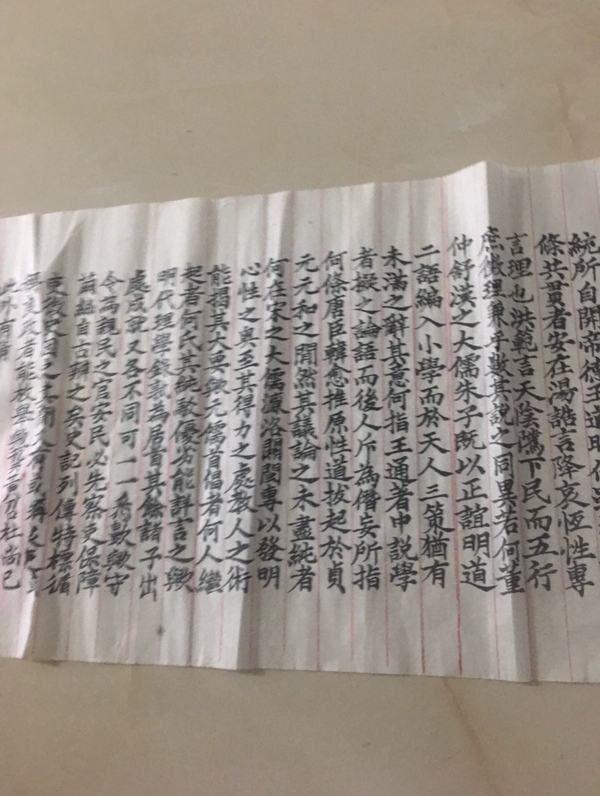 統所自開帝傳王道明
條共貫者安在湯誥言降衷恆性專
言理也洪範言天陰隲下民而五行
庶徵理兼乎數其說之同異若何董
仲舒漢之大儒朱子既以正誼明道
二語編入小學而於天人三策猶有
未滿之辭其意何指王通著中說學
者擬之論語而後人斥為僭妄所指
何條唐臣韓愈推原性道拔起於貞
元元和之間然其議論之未盡純者
何在宋之大儒濂洛關閩專以發明
心性之奧至其得力之處教人之術
能揭其大要歟元儒首倡者何人繼
起者何氏其純駁優劣能詳言之歟
明代理學錢袁為居首其餘諸子出
處成就又各不同可一一条數歟守
令為親民之官安民必先察吏保障
繭絲自古辨之矣史記列傳特標循
吏